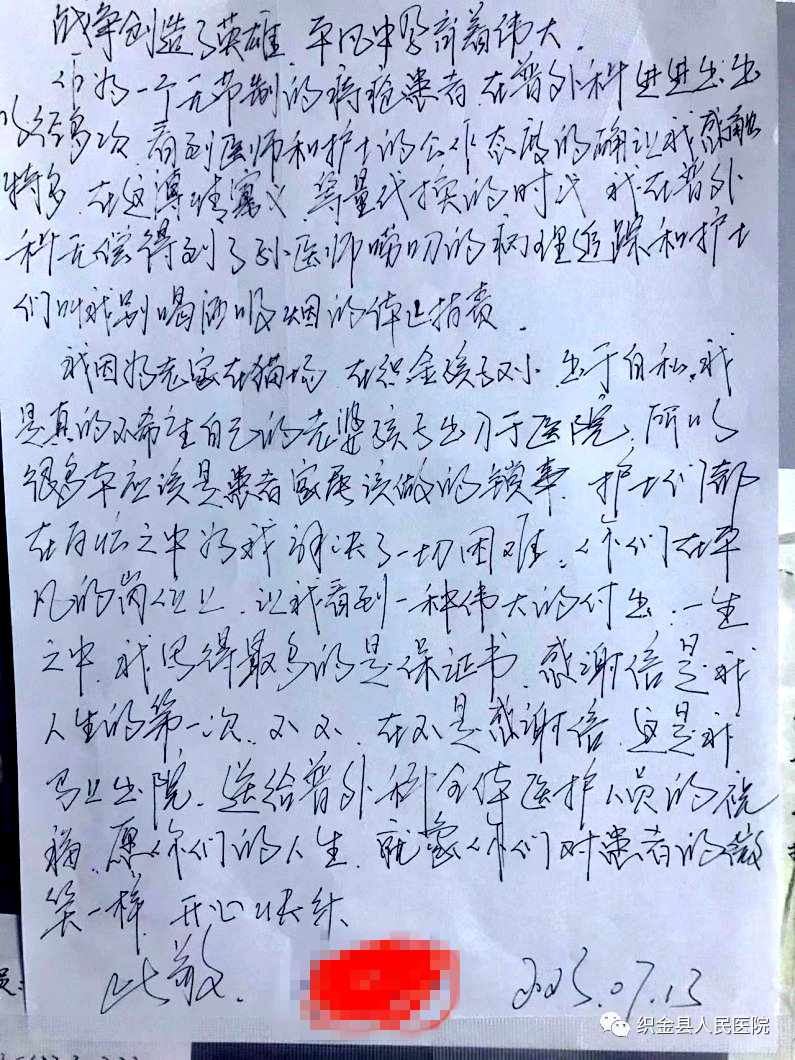 战争创造了英雄、平凡中孕育着伟大。
作为一个无节制的痔疮患者、在普外科进进出出
以经多次、看到医师和护士的工作态度的确让我感触
特多、在这薄情寡义、等量代换的时代、我在普外
科无偿得到了孙医师唠叨的病理追踪和护士
们叫我别喝酒吸烟的停止指责。
我因为老家在猫场、在织金孩子又小、出于自私、我
是真的不希望自己的老婆孩子出入于医院、所以
很多本应该是患者家属该做的锁事、护士们都
在百忙之中为我解决了一切困难、你们在平
凡的岗位上、让我看到一种伟大的付出、一生
之中、我写得最多的是保证书、感谢信是我
人生的第一次、不不、在不是感谢信、这是我
马上出院、送给普外科全体医护人员的祝
福、愿你们的人生、就象你们对患者的微
笑一样、开心快乐
此致、
2025.07.13
织金县人民医院